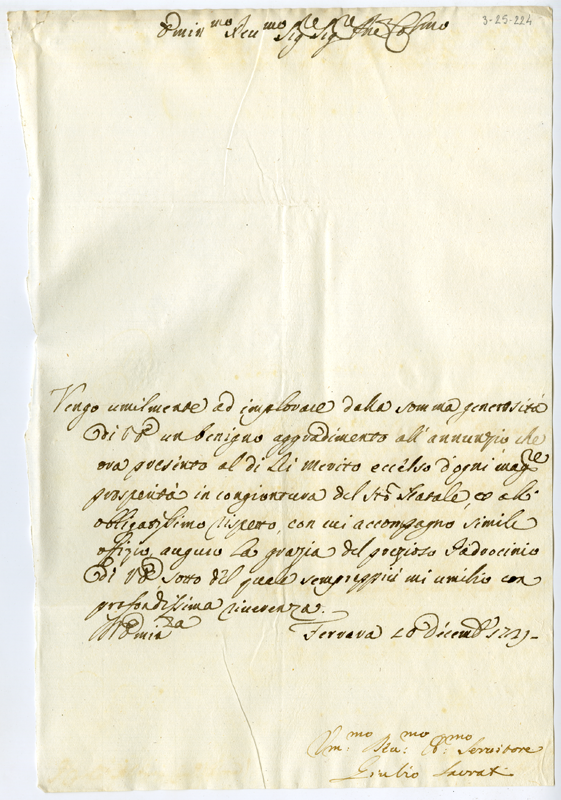 3-25-224
Emin.mo Reu.mo Sig.re Sig.re Pne Colmo
Vengo umilmente ad implorare dalla somma generosità
di V E un benigno aggradimento all'annunzio che
ora presento al di Lei merito eccelso d'ogni mag.re
prosperità in congiontura del Sto Natale, ed all'
obligatissimo rispetto, con cui accompagno simile
offizio, auguro la grazia del prezioso Padrocinio
di V E sotto del quale semprepiù mi umilio con
profondissima riuerenza.
Ferrara 20 Decemb
Um.mo Deu.mo Ob.mo Seruitore
Giulio Sacrati